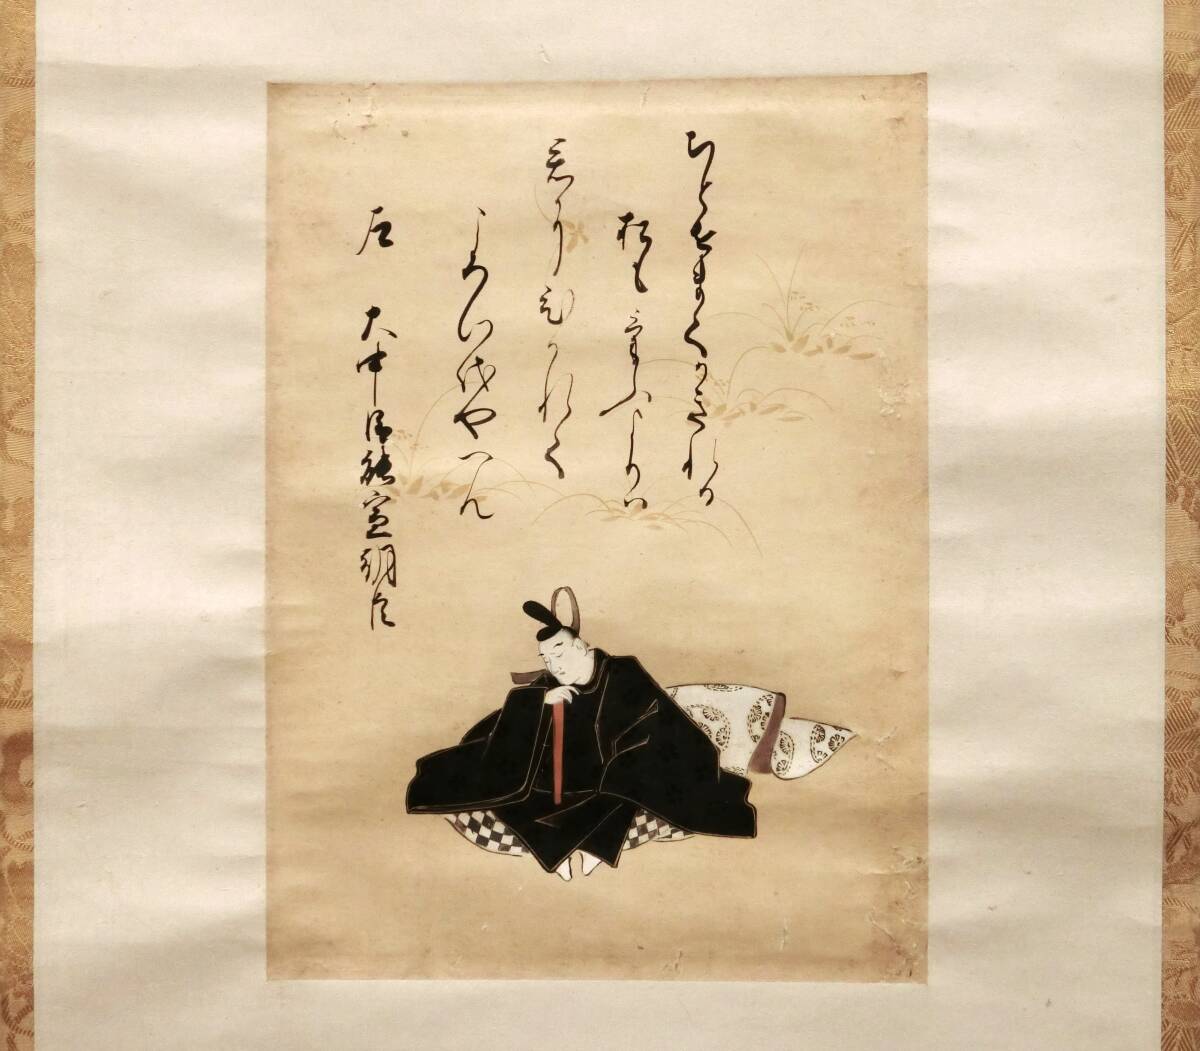 ちとせまてかきれる
松もけふよりハ
君にひかれて
よろつ代やへん
左 大中臣能宣朝臣